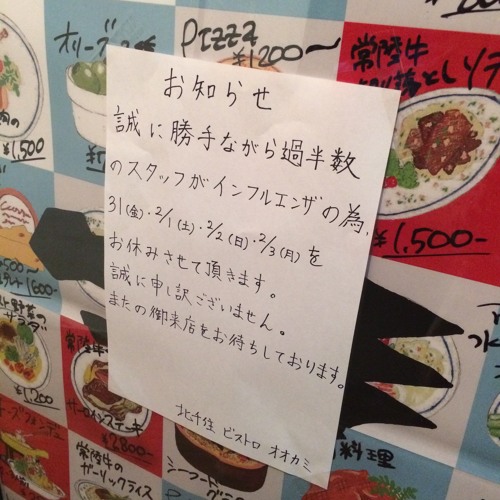 お知らせ
誠に勝手ながら過半数
のスタッフがインフルエンザの為、
31(金)・2/1(土)・2/2(日)・2/3(月)を
お休みさせて頂きます。
誠に申し訳ございません。
またの御来店をお待ちしております。
北千住 ビストロ オオカミ
オリーブ
PIZZA
¥1200～
常陸牛
¥1,500
¥1,500-
サラダ
¥1,200
常陸牛
サーロインステーキ
¥2,800-
常陸牛の
ガーリックライス
シーフード
料理